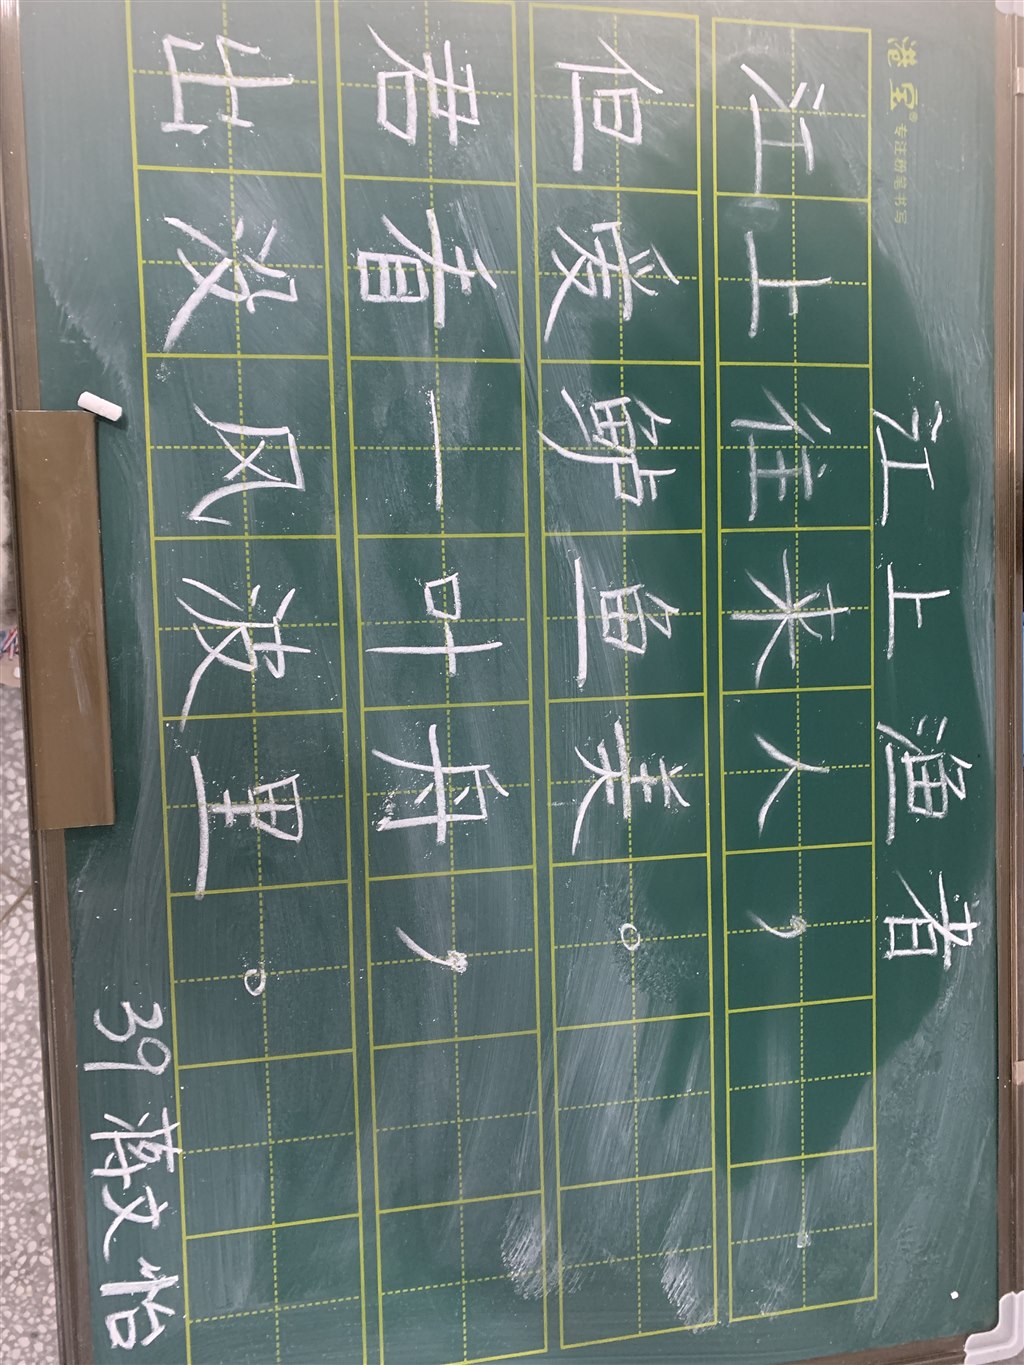 专注粉笔书写
江上渔者
江上往来人，
但爱鲈鱼美。
君看一叶舟，
出没风波里。
39 蒋文怡